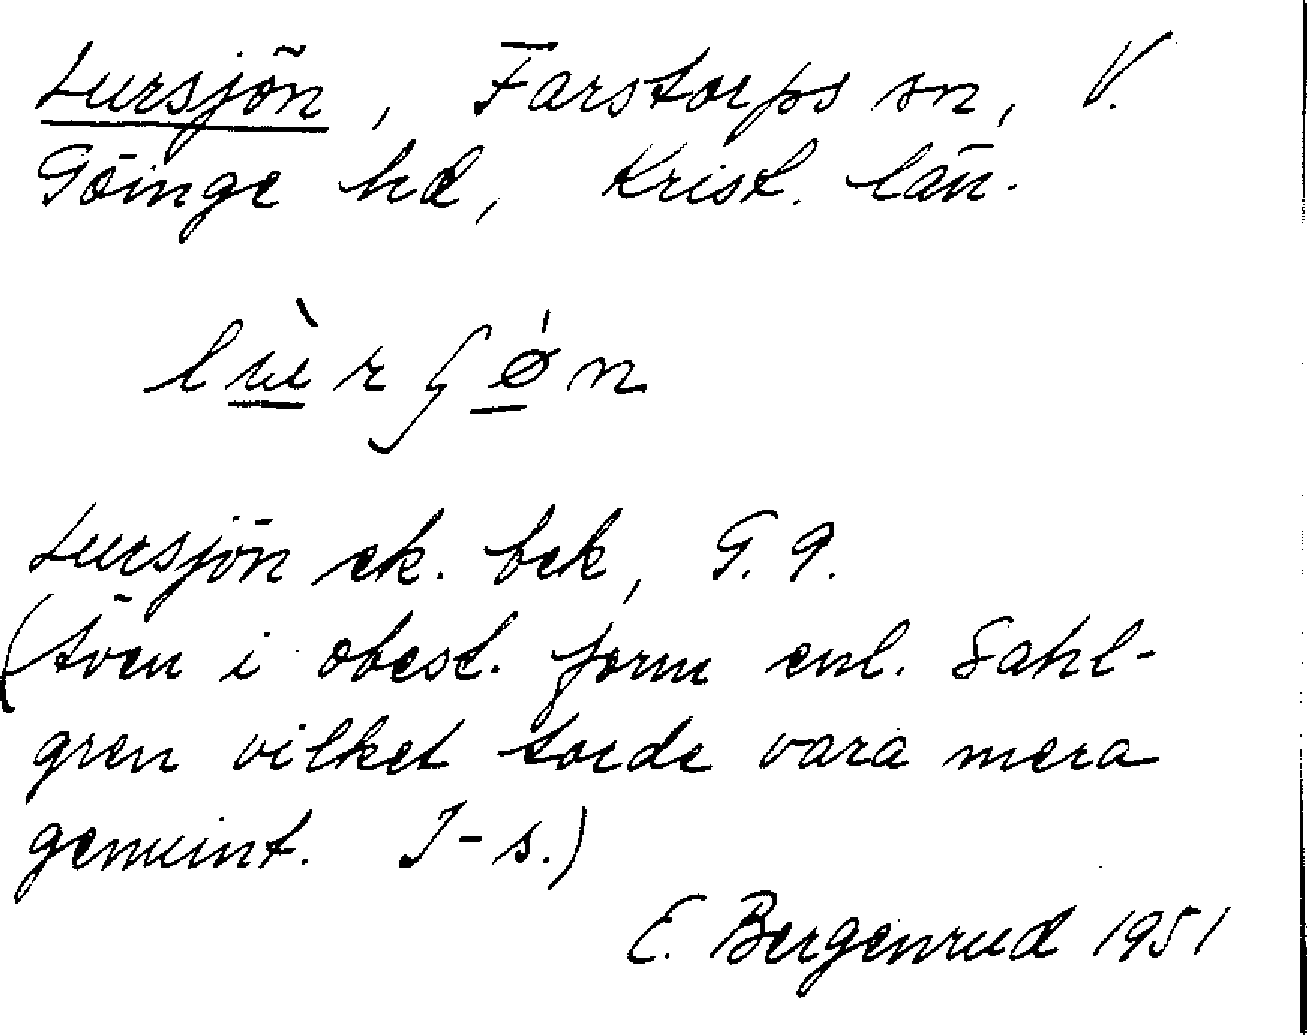 Lursjön, Farstorps sn, V.
Göinge hd, Krist. län.
Lursjön ek. bek, G. 9.
(Även i obest. form enl. Sahl-
gren vilket torde vara mera
genuint. I-s.)
E. Bergenrud 1951